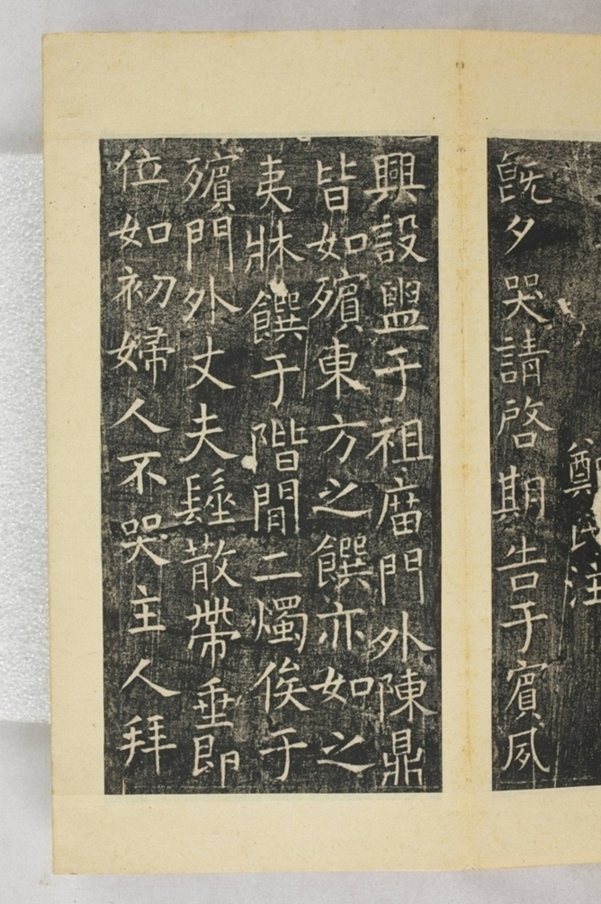 鄭氏注
既夕哭請啓期告于賓夙
興設盥于祖庿門外陳鼎
皆如殯東方之饌亦如之
夷牀饌于階間二燭俟于
殯門外丈夫髽散帶垂即
位如初婦人不哭主人拜